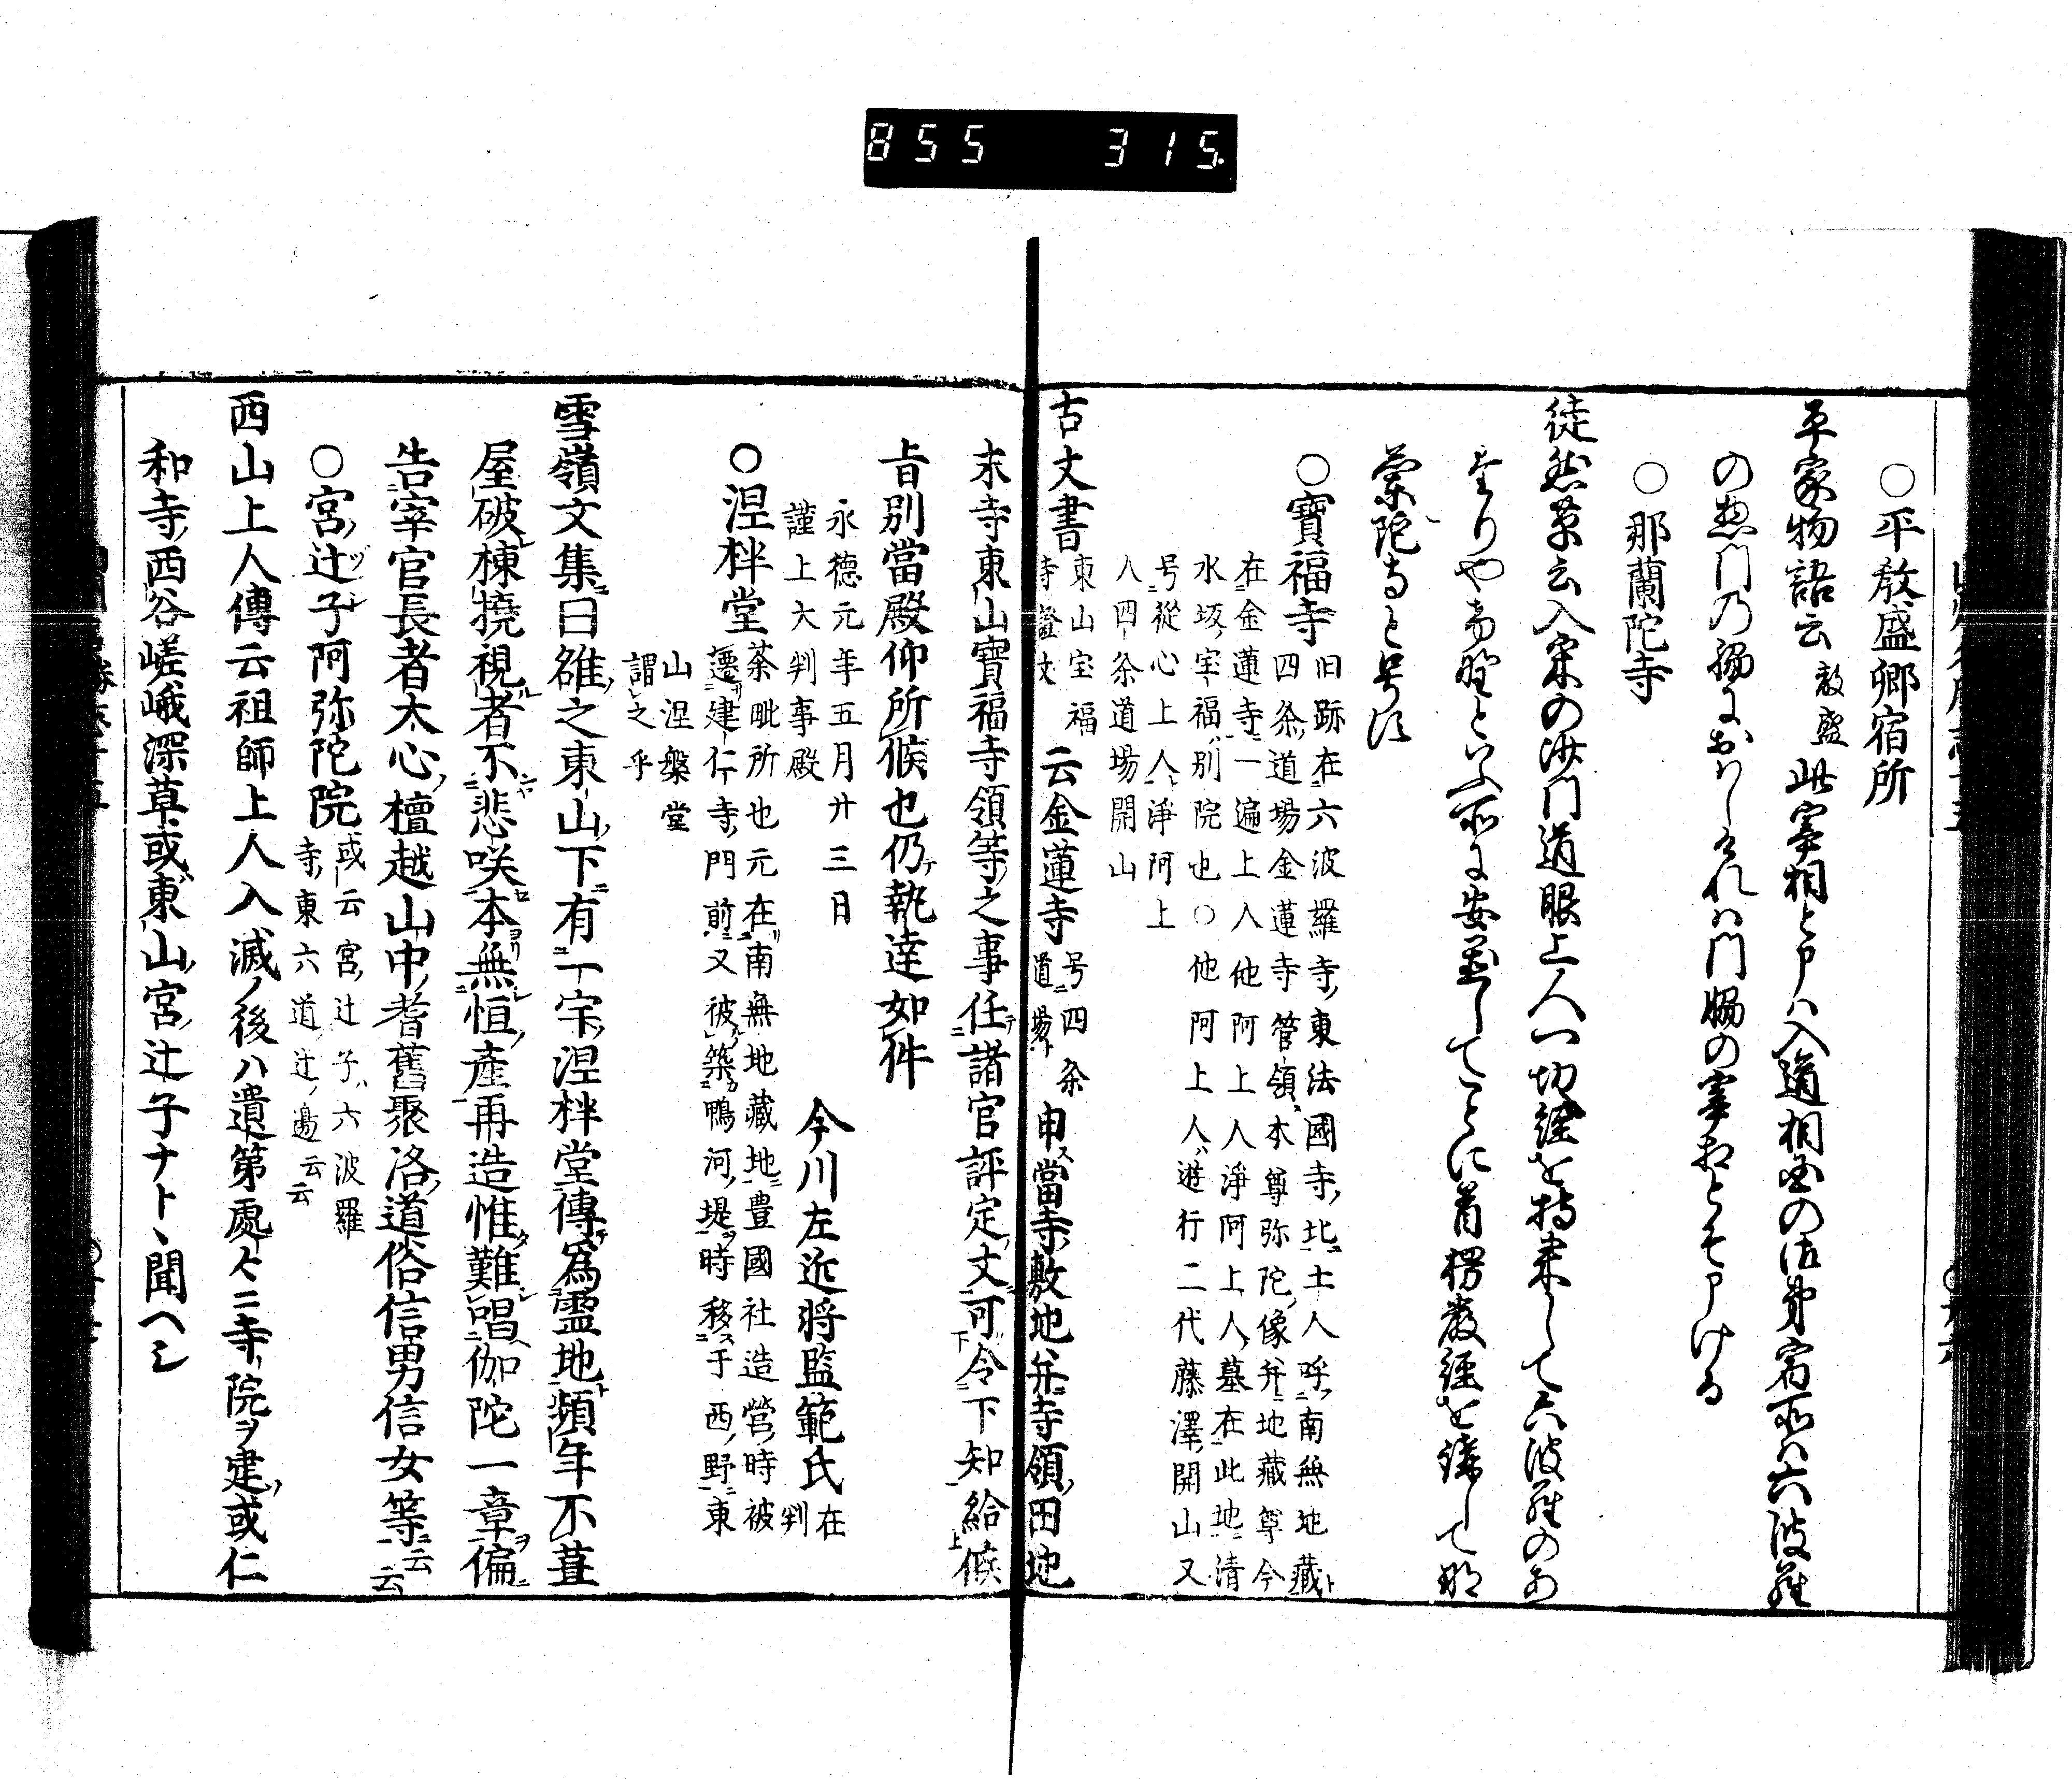 855 315.
○平敎盛卿宿所
平家物語云敎盛此宰相と申ハ入道相国の御弟宿所ハ六波羅
の惣門乃脇におハしけれハ門脇の宰相とそ申ける
○那蘭陀寺
徒然草云入宋の沙門道眼上人一切経を持来して六波羅のあ
たりやけ野といふ所に安置してことに首楞嚴経を講して那
蘭陀寺と号す
○寶福寺旧跡在六波羅寺東法國寺北土人呼南無地藏
四条道場金蓮寺管領本尊弥陀像并地藏尊今
在金蓮寺一遍上人他阿上人淨阿上人墓在此地清
水坂宝福別院也○他阿上人遊行二代藤澤開山又
号從心上人淨阿上
人四条道場開山
古文書東山宝福寺證文云金蓮寺号四条道場申當寺敷地并寺領田地
末寺東山寶福寺領等之事任諸官評定文可令下知給候
㫖別當殿仰所候也仍執達如件
永德元年五月廿三日 今川左近将監範氏在判
謹上大判事殿
○涅枠堂荼毗所也元在南無地藏地豊國社造營時被
遷建仁寺門前又被築鴨河堤時移于西野東
山涅槃堂
謂之乎
雪嶺文集曰雒之東山下有一宗涅枠堂傳為靈地頻年不葺
屋破棟撓視者不悲咲本無恒產再造惟難唱伽陀一章偏
告宰官長者大心檀越山中耆舊聚洛道俗信男信女等云云
○宮辻子阿弥陀院或云宮辻子ハ六波羅
寺東六道辻邊云云
西山上人傳云祖師上人入滅ノ後ハ遺第處々ニ寺院ヲ建或仁
和寺西谷嵯峨深草或東山宮辻子ナト、聞ヘシ